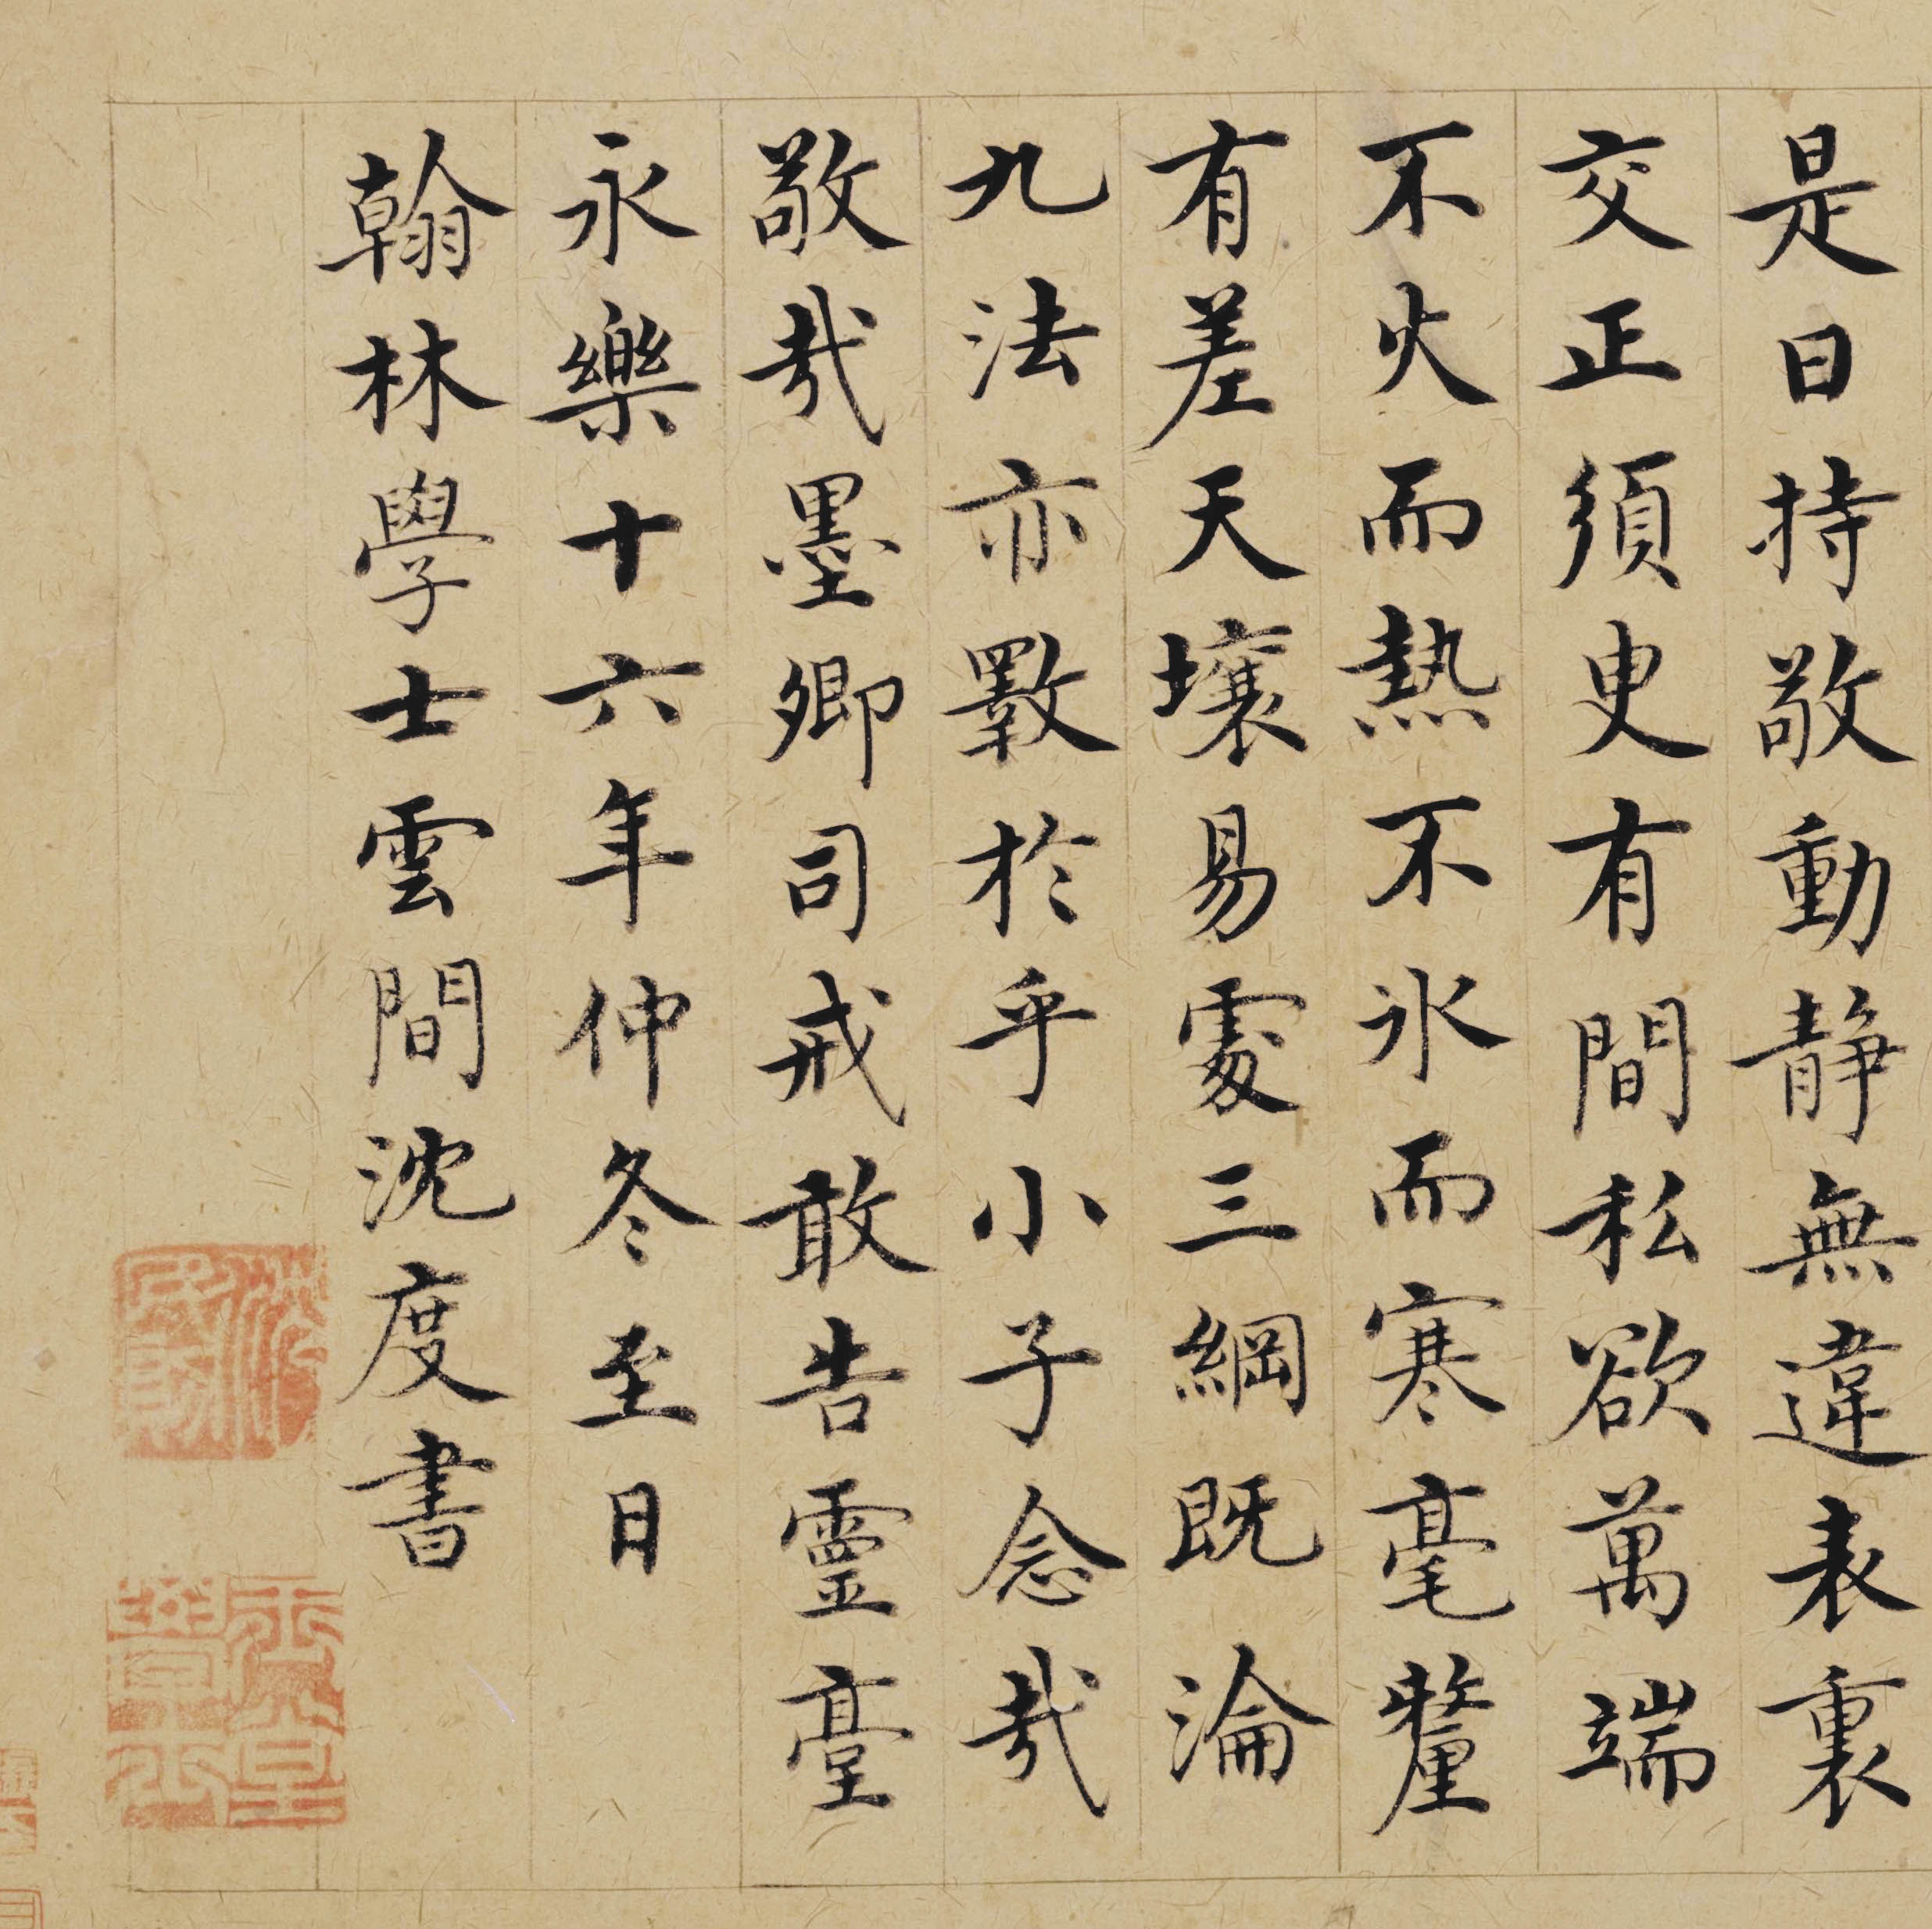 是曰持敬動静無違表裏
交正須臾有間私欲萬端
不火而熱不氷而寒毫釐
有差天壤易處三綱既淪
九法亦斁於乎小子念哉
敬哉墨卿司戒敢告靈臺
永樂十六年仲冬至日
翰林學士雲間沈度書